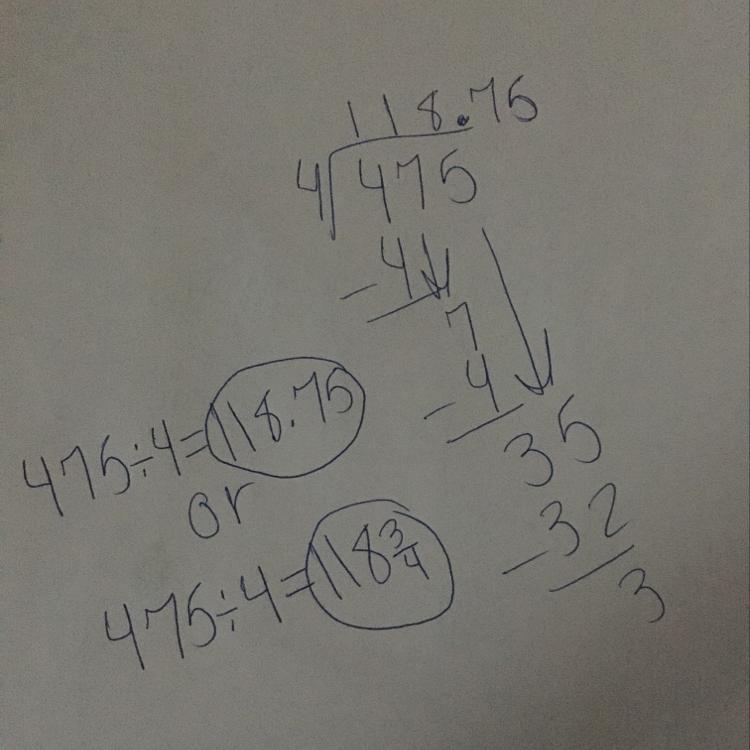 118.75
4√475
-4
7
-4
35
-32
3
475÷4=118.75
or
475÷4=118 3/4